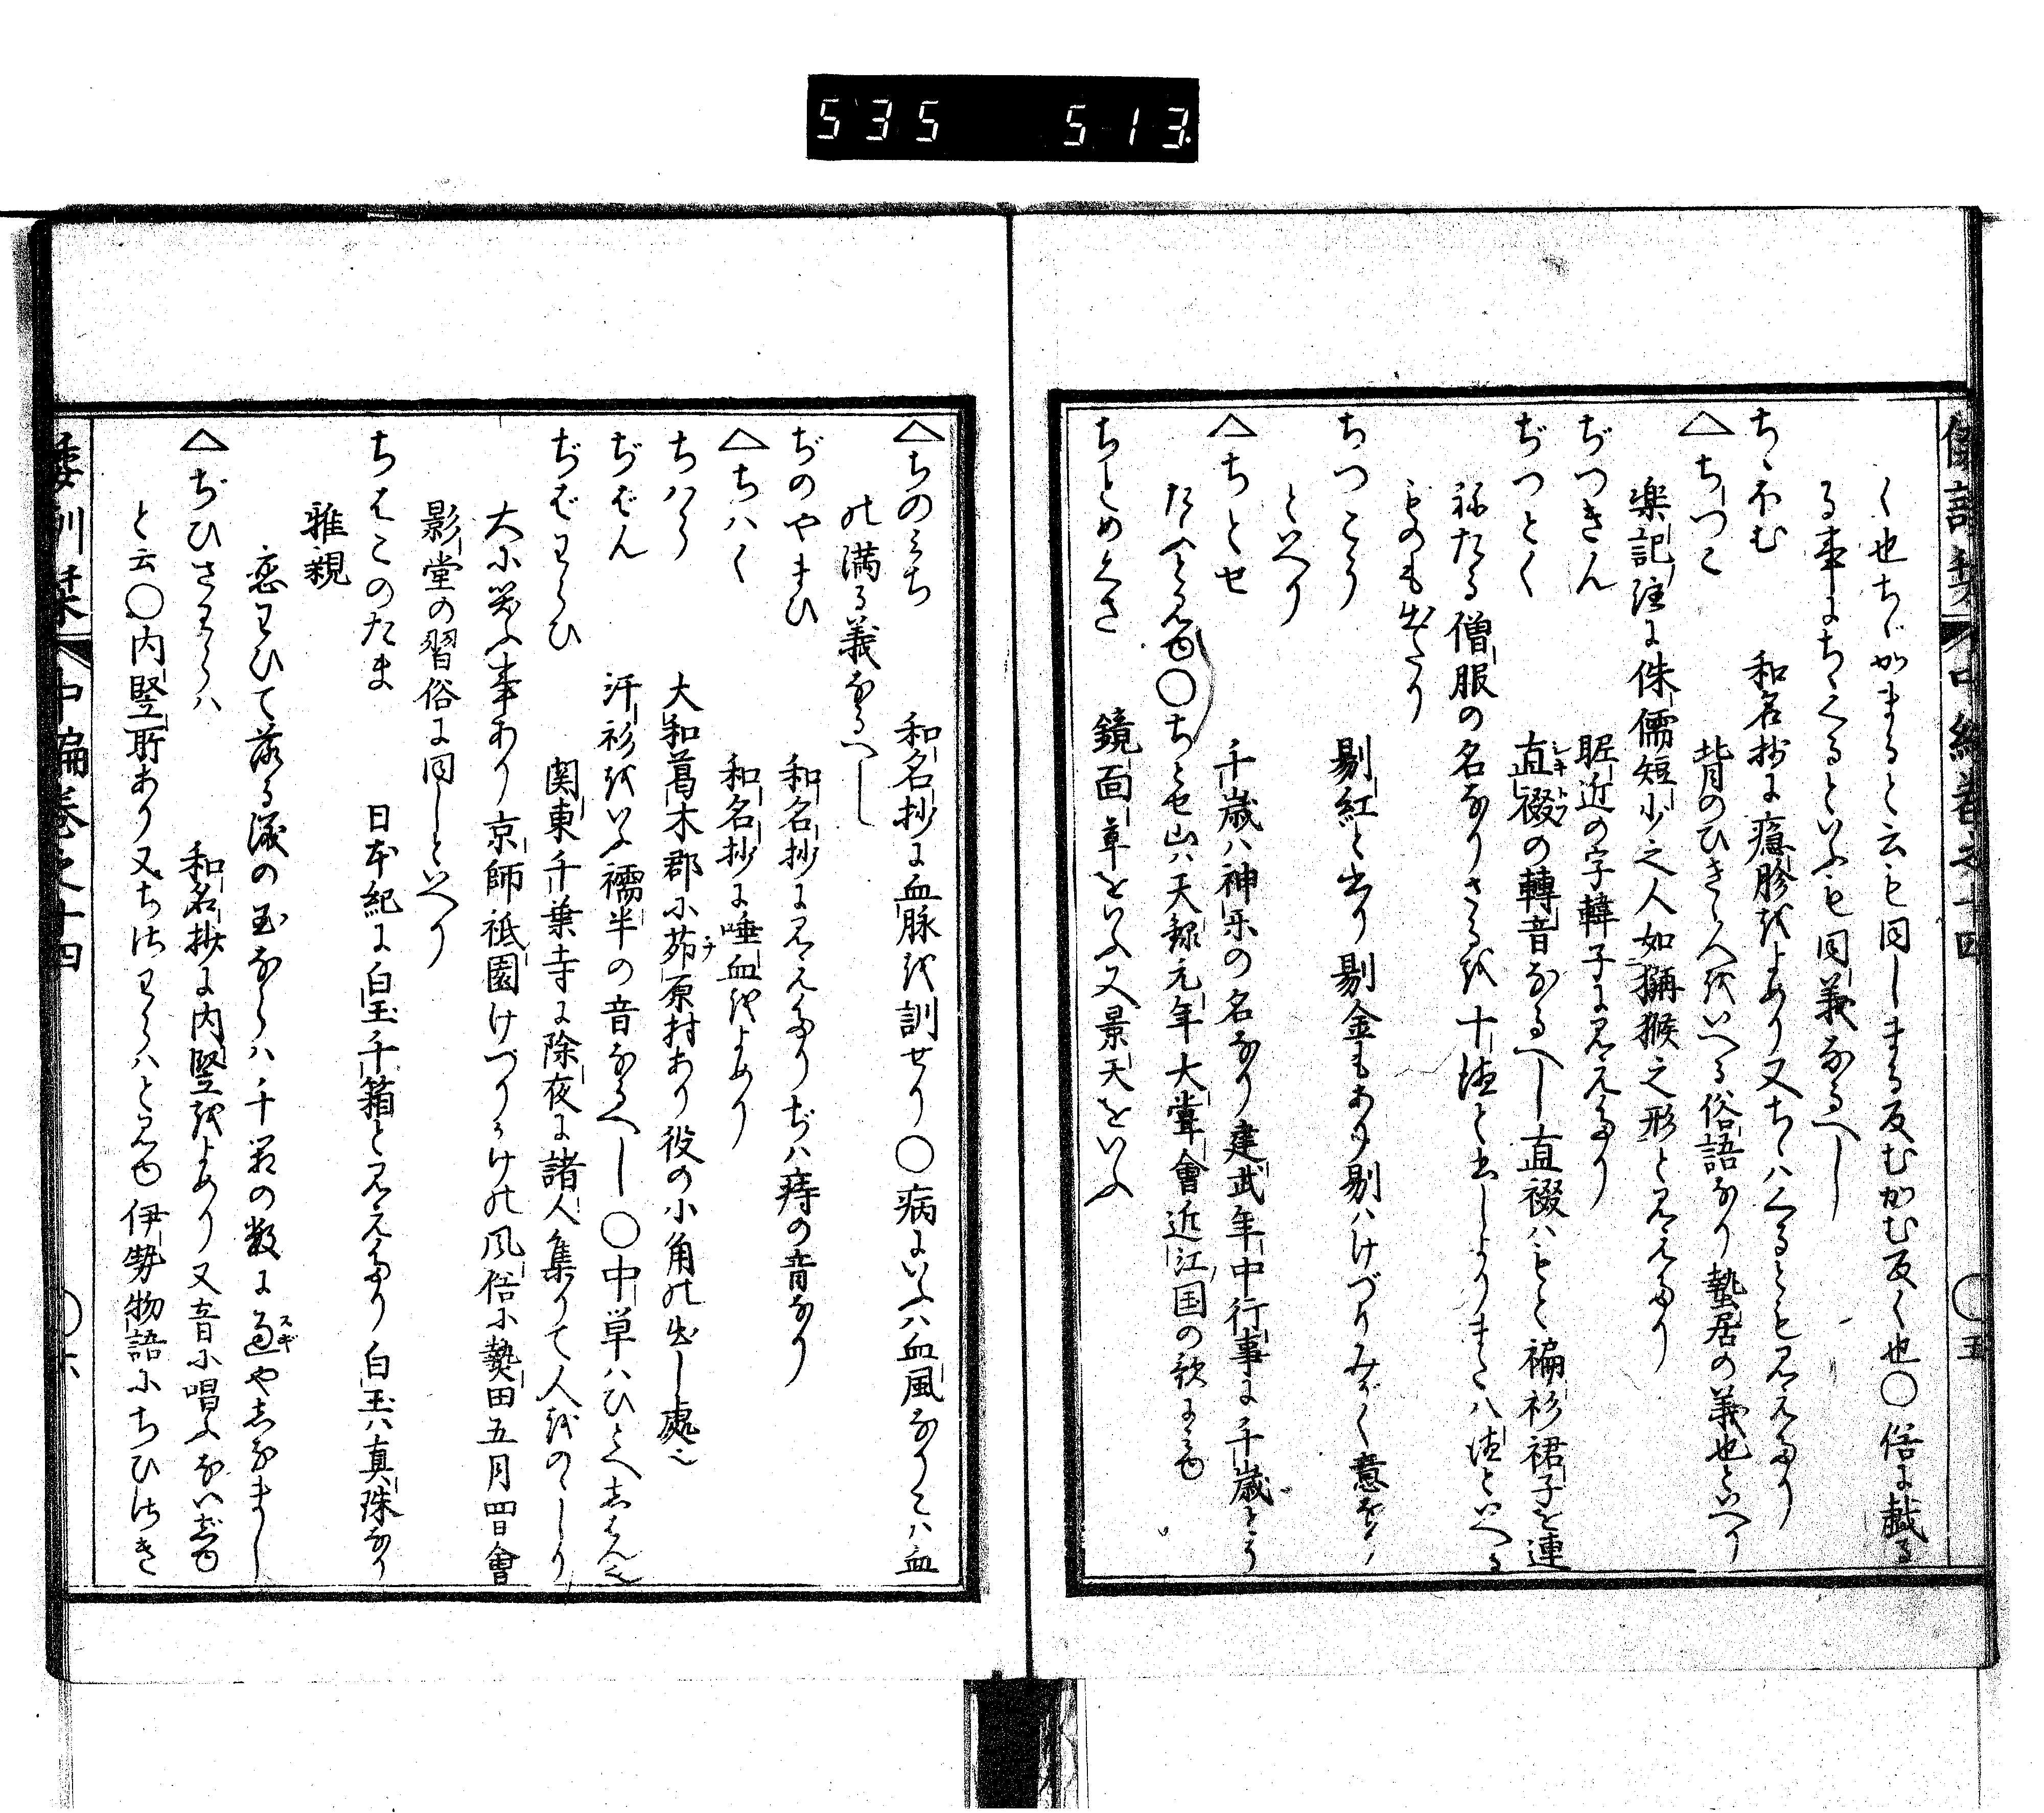 535 513
く也ちゞかまると云も同しまる反むかむ反く也○俗に戯る
る事にちゝくるといふも同義なるへし
ちゝふむ 和名抄に癮胗をよめり又ちゝはくるとも見えたり
△ちつこ 背のひきゝをいへる俗語なり蟄居の義也といへり
楽記注に侏儒短少之人如獼猴之形と見えたり
ぢつきん 昵近の字韓子に見えたり
ぢつとく 直綴の轉音なるへし直綴はもと褊衫裙子を連
ねたる僧服の名なりさるを十徳と書しよりまた八徳といへる
ものも出たり
ちつこう 剔紅と書り剔金もあり剔はけづりみがく意なり
といへり
△ちとせ 千歳は神楽の名なり建武年中行事に千歳とう
たふと見ゆ○ちとせ山は天禄元年大嘗會近江国の歌に見ゆ
ちとめくさ 鏡面草をいふ又景天をいふ
△ちのみち 和名抄に血脉を訓せり○病にいふは血風なりこは血
の満る義なるへし
ぢのやまひ 和名抄に見えたりぢは痔の音なり
△ちはく 和名抄に唾血をよめり
ちはら 大和葛木郡に茆原村あり役の小角の出し處也
ぢばん 汗衫をいふ襦半の音なるへし○中単はひとへしはん也
ぢばわらひ 関東千葉寺に除夜に諸人集りて人をのゝしり
大に笑ふ事あり京師祇園けづりかけの風俗に熱田五月四日會
影堂の習俗に同しといへり
ちはこのたま 日本紀に白玉千箱と見えたり白玉は真珠なり
雅親
恋わひて落る涙の玉ならは千箱の数に過やしなまし
△ぢひさわらは 和名抄に内竪をよめり又音に唱ふないじゆ
と云○内竪所あり又ちひさわらはと見ゆ伊勢物語にちひさき
倭訓栞 中編巻之十四 ○六